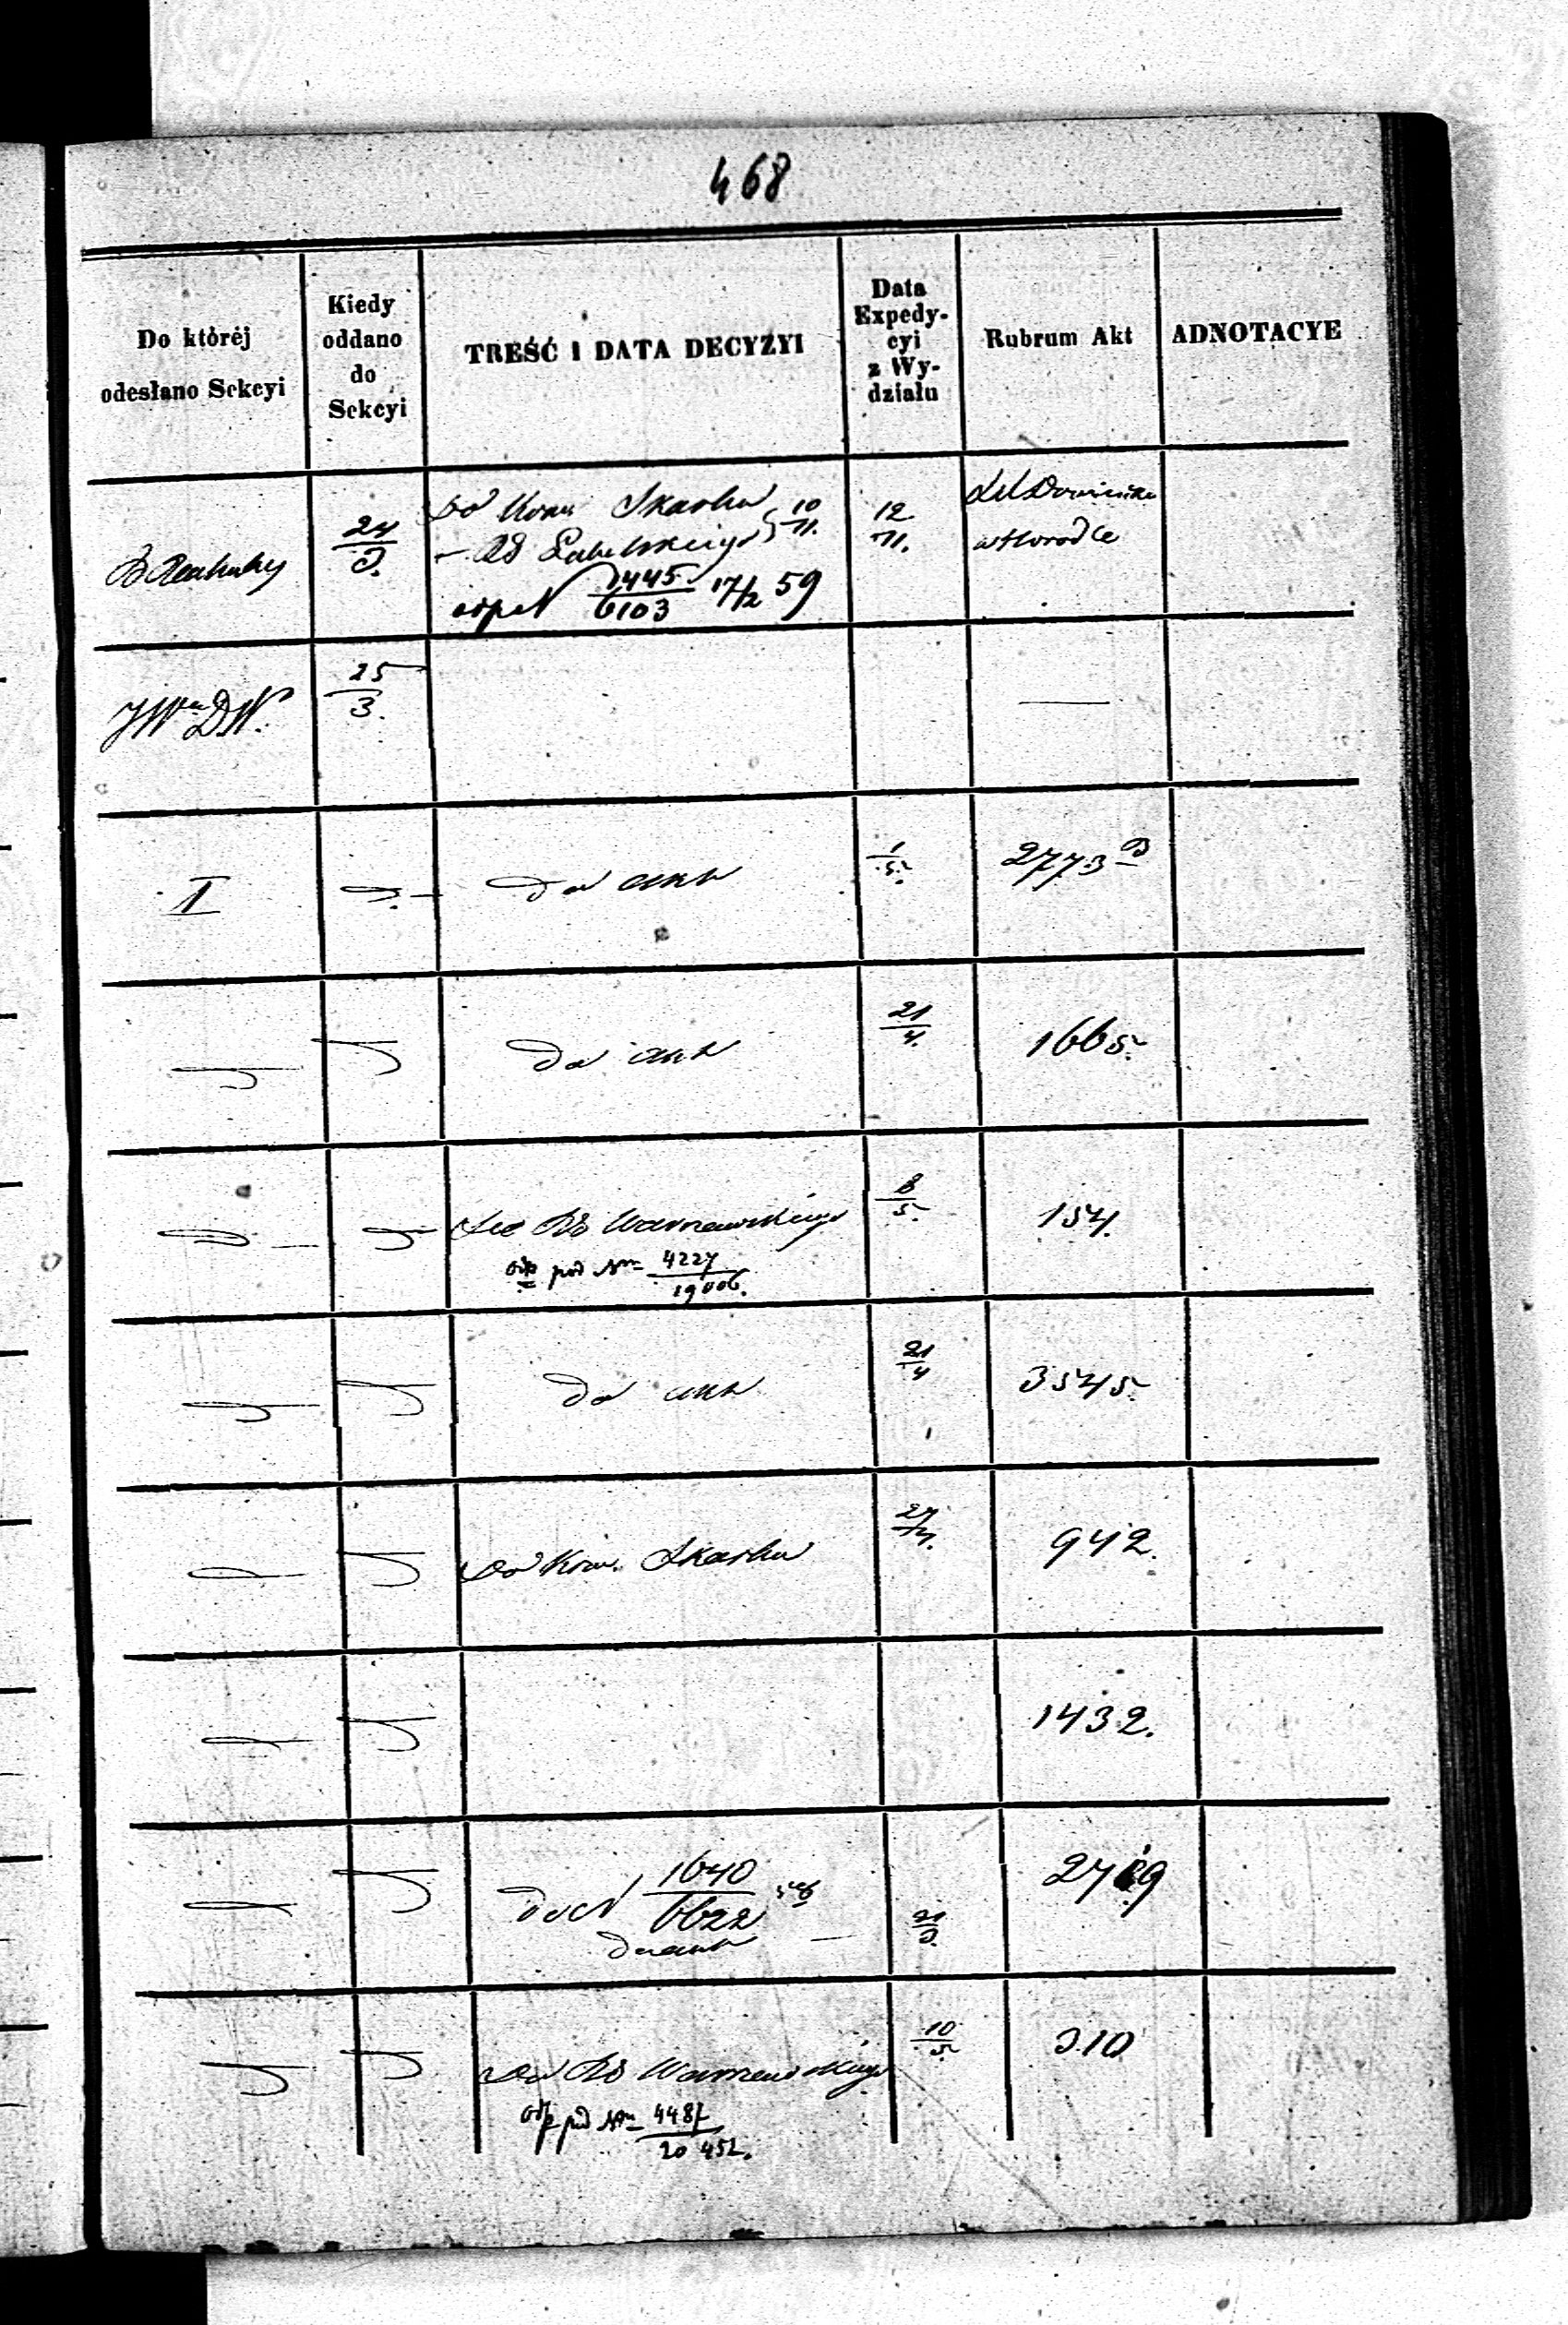 468
Do któréj odesłano Sekcyi
Kiedy oddano do Sekcyi
TREŚĆ I DATA DECYZYI
Data Expedycyi z Wydziału
Rubrum Akt
ADNOTACYE
24/3.
Do Kom Skarbu
10/11.
— RG Lubelskiego
odp N 1445/6103 17/2 59
12/11.
JWn DW.
25/3.
—
I
do akt
1/5.
2773 B
do akt
21/4.
1665.
Do RG Warszawskiego
odp pod Nrm 4227/19006.
8/5.
154.
do akt
21/4
3545.
Do Kom. Skarbu
942.
1432.
do N 1640/6622
do akt
10/5.
310
Do RG Warszawskiego
odp pod Nrm 4487/20452.